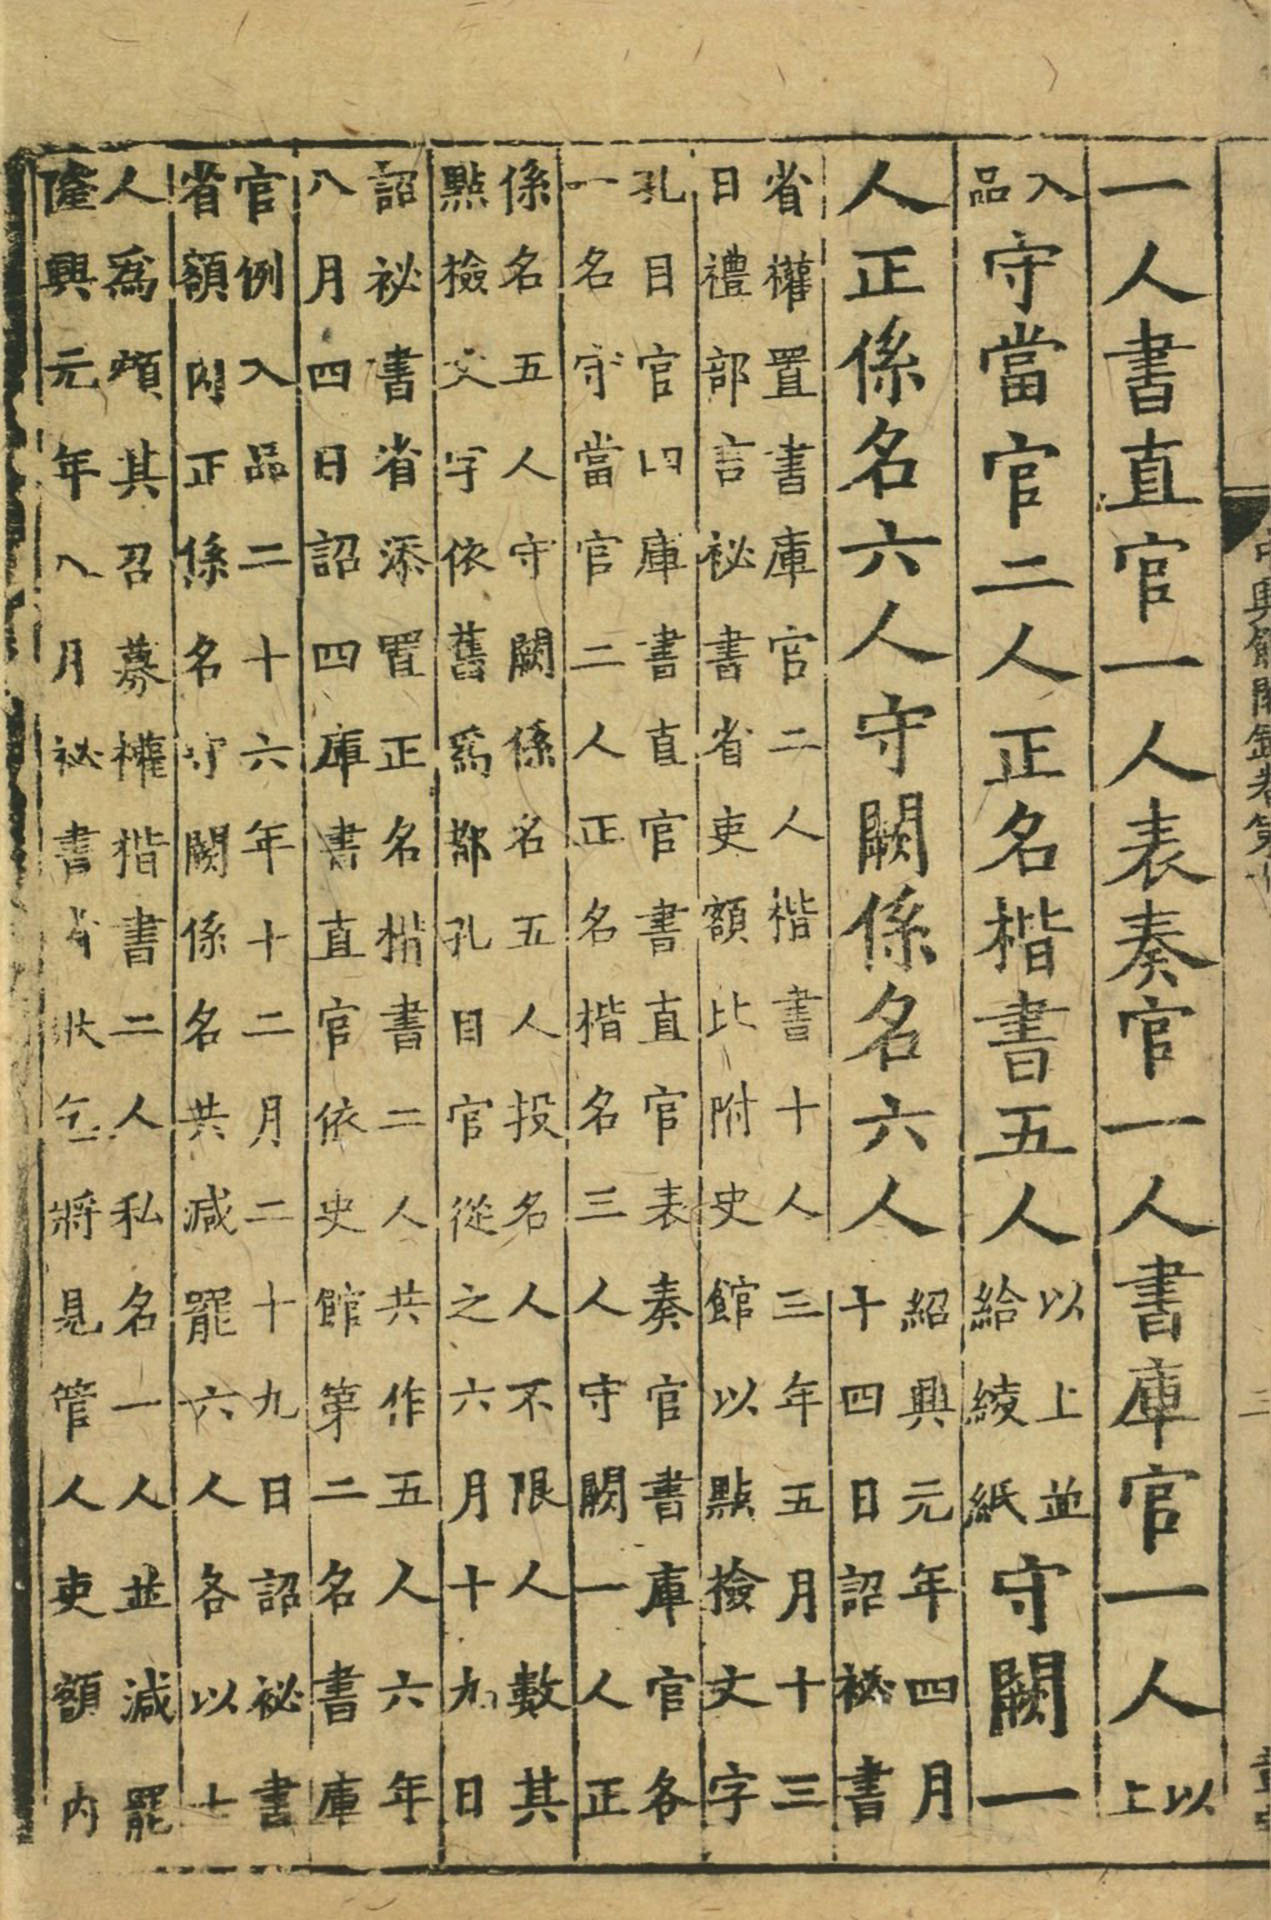 一人書直官一人表奏官一人書庫官一人以上
入品守當官二人正名楷書五人以上並給綾紙守闕一
人正係名六人守闕係名六人紹興元年四月十四日詔祕書
省權置書庫官二人楷書十人三年五月十三
日禮部言祕書省吏額比附史館以點檢文字
孔目官四庫書直官書直官表奏官書庫官各
一名守當官二人正名楷名三人守闕一人正
係名五人守闕係名五人投名人不限人數其
點檢文字依舊爲都孔目官從之六月十九日
詔祕書省添置正名楷書二人共作五人六年
八月四日詔四庫書直官依史館第二名書庫
官例入品二十六年十二月二十九日詔祕書
省額內正係名守闕係名共減罷六人各以十
人爲額其召募權楷書二人私名一人並減罷
隆興元年八月祕書省狀乞將見管人吏額內
中興館閣錄卷第十